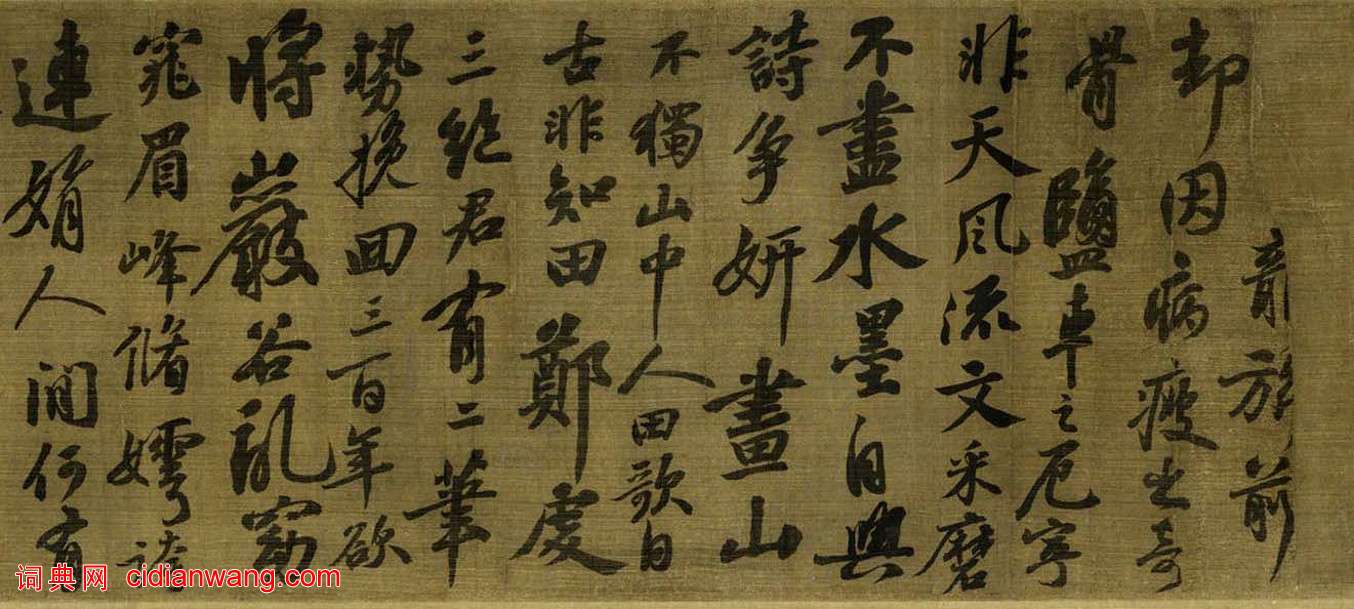 旂前
却因病瘦出奇
骨鹽車之厄寧
非天風流文采磨
不盡水墨自與
詩爭妍畫山
不獨山中人田歌自
古非知田鄭虔
三絕君有二筆
勢挽回三百年欲
將巖谷亂窈
窕眉峰脩嫮誇
連娟人間何有
词典网 cidianwang.com